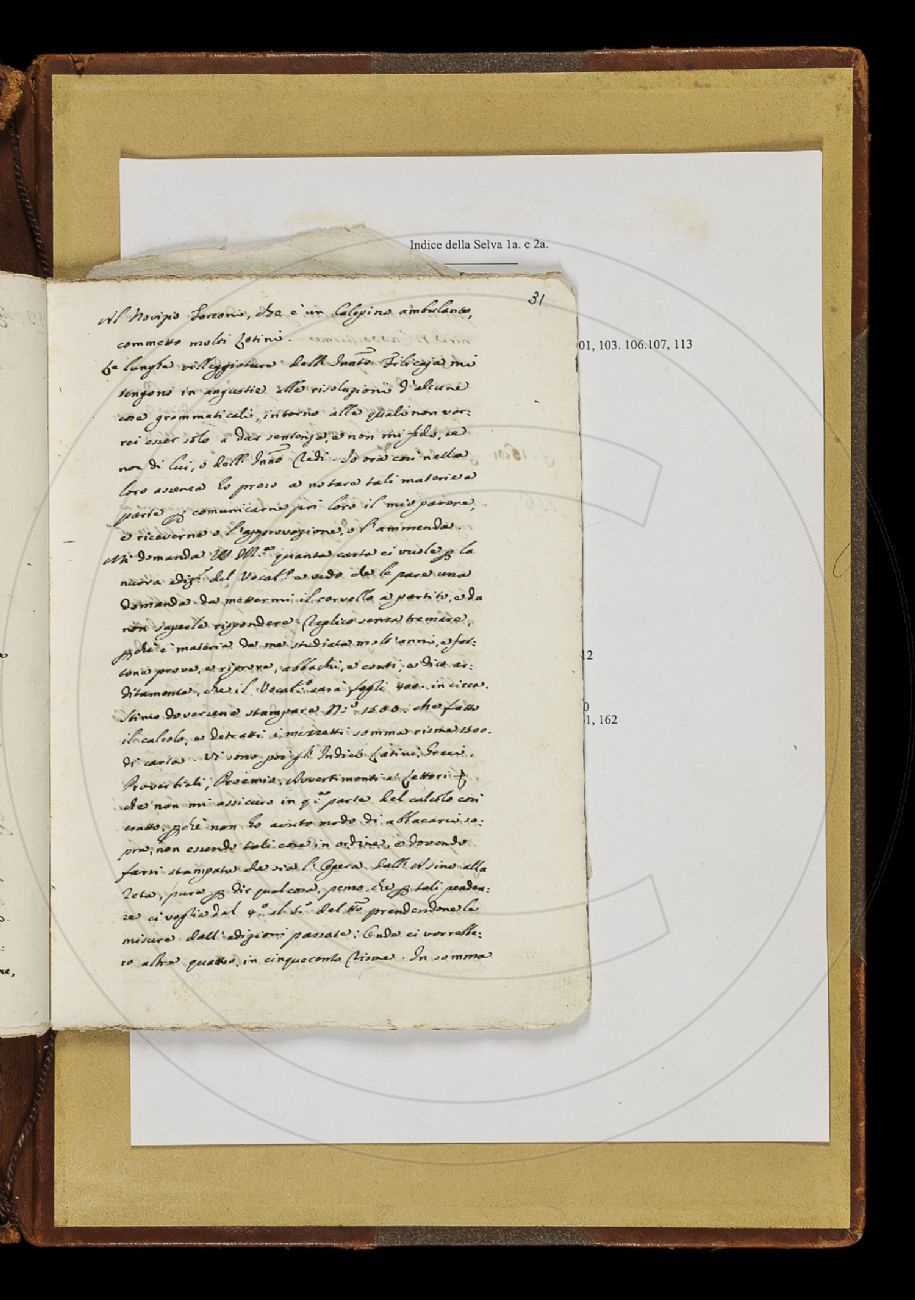 Indice della Selva 1a. e 2a.
31
Al Novizio Forconi, che è un Calepino ambulante,
commetto molti Latini.
Le lunghe villeggiature dell' Inn.to Filicaja mi
tengono in angustie alle risoluzioni d'alcune
cose grammaticali, intorno alle quali non vor:
rei esser solo a dar sentenza, e non mi fido, se
non di lui, o dell' Inn.to Redi. Io ora così nella
loro assenza ho preso a notare tali materie a
parte p comunicarne poi loro il mio parere,
e riceverne o l'approvazione, o l'ammenda.
Mi domanda quanta carta ci vuole p la
nuova ediz.e del Vocab.o e vedo che le pare una
domanda da mettermi il cervello a partito, e da
non saperle rispondere. Replico senza tremare,
pchè è materia da me studiata molti anni, e fat:
tone prova, e riprova, abbachi, e conti, e dico ar:
ditamente, che il Vocab.o sarà fogli 900. in circa.
Stimo doversene stampare N.o 1600: che fatto
il calcolo, e detratti i mezzetti somma risme 1500.
di carta. Vi sono poi gl' Indici Latini, Greci,
Proverbiali, Proemio, Avvertimenti a' Lettori
che non mi assicuro in q.a parte del calcolo così
esatto, pchè non ho avuto modo di abbacarvi so:
pra, non essendo tali cose in ordine, e dovendo
farsi stampata che sia l'Opera dall' Asino alla
Zeta, pure p dir qualcosa, penso che p tali penden:
ze ci voglia dal 4.o al 5.o del tto prendendone le
misure dall' edizioni passate: Onde ci vorrebbe:
ro altre quattro, in cinquecento Risme. In somma
01, 103. 106.107, 113
12
0
1, 162